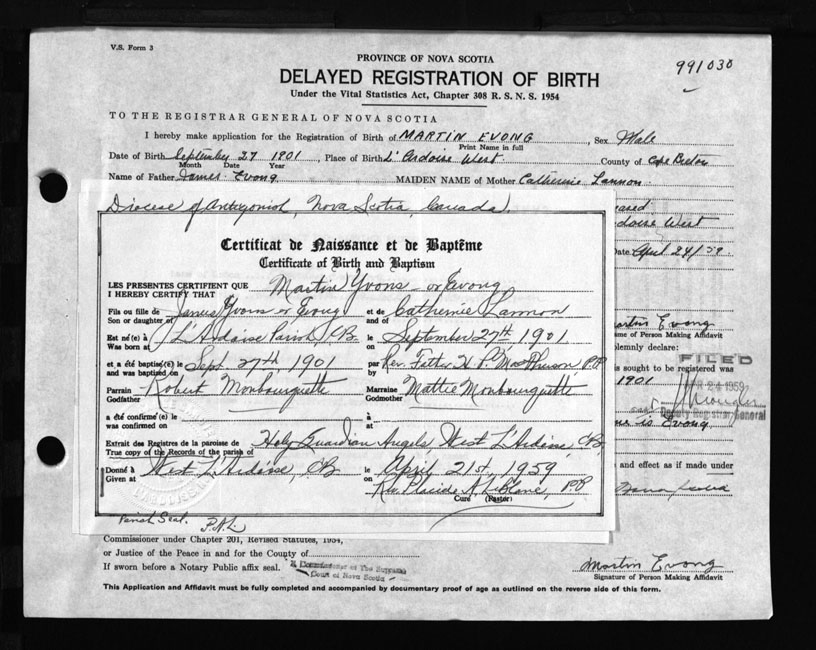 V.S. Form 3
PROVINCE OF NOVA SCOTIA
991030
DELAYED REGISTRATION OF BIRTH
Under the Vital Statistics Act, Chapter 308 R. S. N. S. 1954
TO THE REGISTRAR GENERAL OF NOVA SCOTIA
I hereby make application for the Registration of Birth of MARTIN EVONG, Sex Male
Print Name in full
Date of Birth September 27 1901, Place of Birth L'Ardoise West. County of Cape Breton
Month Day Year
Name of Father James Evong MAIDEN NAME of Mother Catherine Lannon
Diocese of Antigonish, Nova Scotia, Canada.
Certificat de Naissance et de Baptême
Certificate of Birth and Baptism
LES PRESENTES CERTIFIENT QUE
I HEREBY CERTIFY THAT Martin Yvons or Evong
Fils ou fille de James Yvons or Evong et de Catherine Lannon
Son or daughter of and of
Est né(e) à L'Ardoise Parish, CB. le September 27th, 1901
Was born at on
et a été baptisé(e) le Sept. 27th 1901 par Rev. Father H. P. MacPherson P.P.
and was baptised on by
Parrain Robert Monbourquette Marraine Mattie Monbourquette
Godfather Godmother
a été confirmé(e) le à
was confirmed on at
Extrait des Registres de la paroisse de Holy Guardian Angels, West L'Ardoise, CB.
True copy of the Records of the parish of
Donné à West L'Ardoise, CB le April 21st, 1959
Given at on
Rev. Placide A. LeBlanc, P.P.
Curé (Pastor)
Parish Seal. P.A.L.
eased
doise West
Date April 24/59
artin Evong
me of Person Making Affidavit
olemnly declare:
FILED
is sought to be registered was
1901
24 1959
Deputy Registrar-General
me is Evong
and effect as if made under
Commissioner under Chapter 201, Revised Statutes, 1954,
or Justice of the Peace in and for the County of
If sworn before a Notary Public affix seal.
A Commissioner of The Supreme
Court of Nova Scotia
Martin Evong
Signature of Person Making Affidavit
This Application and Affidavit must be fully completed and accompanied by documentary proof of age as outlined on the reverse side of this form.